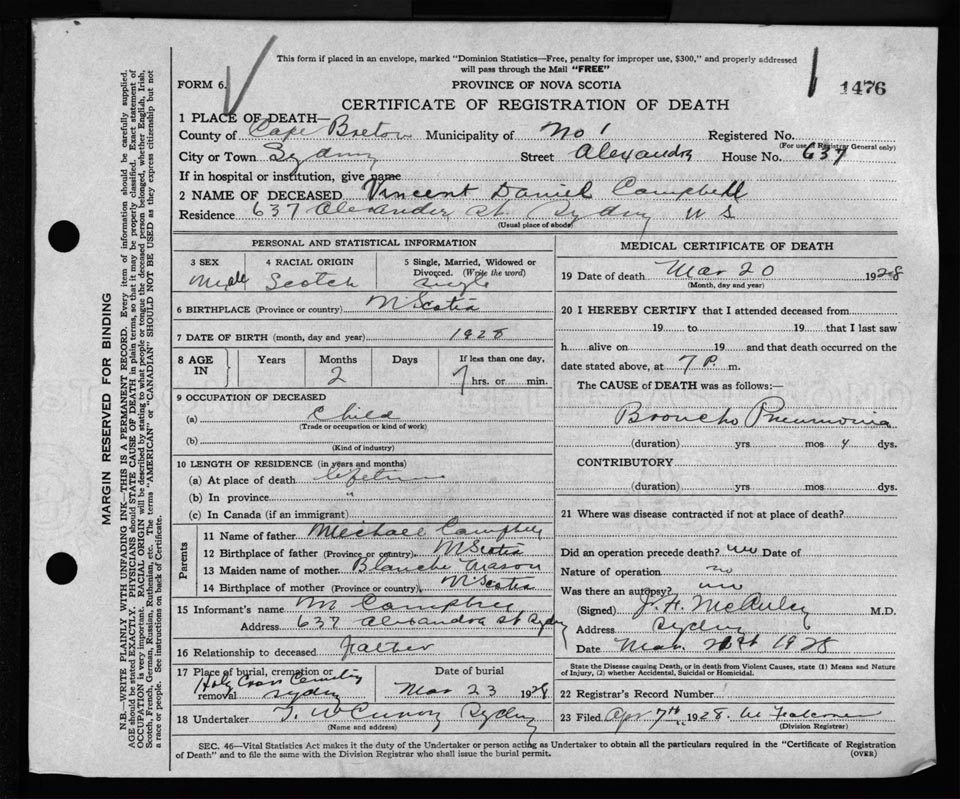 This form if placed in an envelope, marked "Dominion Statistics—Free, penalty for improper use, $300," and properly addressed
will pass through the Mail "FREE"
FORM 6.
PROVINCE OF NOVA SCOTIA
1476
CERTIFICATE OF REGISTRATION OF DEATH
1 PLACE OF DEATH—
County of Cape Breton Municipality of No 1 Registered No.
(For use of Registrar General only)
City or Town Sydney Street Alexandra House No. 637
If in hospital or institution, give name
2 NAME OF DECEASED Vincent Daniel Campbell
Residence 637 Alexander St. Sydney N S
(Usual place of abode)
PERSONAL AND STATISTICAL INFORMATION
3 SEX 4 RACIAL ORIGIN 5 Single, Married, Widowed or
Divorced. (Write the word)
Male Scotch Single
6 BIRTHPLACE (Province or country) N Scotia
7 DATE OF BIRTH (month, day and year) 1928
8 AGE IN Years Months Days If less than one day,
2 hrs. or min.
9 OCCUPATION OF DECEASED
(a) Child
(Trade or occupation or kind of work)
(b)
(Kind of industry)
10 LENGTH OF RESIDENCE (in years and months)
(a) At place of death lifetime
(b) In province "
(c) In Canada (if an immigrant)
Parents
11 Name of father Michael Campbell
12 Birthplace of father (Province or country) N Scotia
13 Maiden name of mother Blanche Mason
14 Birthplace of mother (Province or country) N. Scotia
15 Informant's name M Campbell
Address 637 Alexandra St Sydney
16 Relationship to deceased Father
17 Place of burial, cremation or Date of burial
removal Holy Cross Cemetery
Sydney Mar 23 1928
18 Undertaker Sydney
(Name and address)
MEDICAL CERTIFICATE OF DEATH
19 Date of death Mar 20 1928
(Month, day and year)
20 I HEREBY CERTIFY that I attended deceased from
19 to 19 that I last saw
h alive on 19 and that death occurred on the
date stated above, at 7 P. m.
The CAUSE of DEATH was as follows:—
Broncho Pneumonia
(duration) yrs. mos 4 dys.
CONTRIBUTORY
(duration) yrs. mos. dys.
21 Where was disease contracted if not at place of death?
Did an operation precede death? no Date of
Nature of operation no
Was there an autopsy? no
(Signed) M.D.
Address Sydney
Date Mar. 1928
State the Disease causing Death, or in death from Violent Causes, state (1) Means and Nature
of Injury, (2) whether Accidental, Suicidal or Homicidal.
22 Registrar's Record Number
23 Filed Apr 7th 1928
(Division Registrar)
SEC. 46—Vital Statistics Act makes it the duty of the Undertaker or person acting as Undertaker to obtain all the particulars required in the "Certificate of Registration
of Death" and to file the same with the Division Registrar who shall issue the burial permit. (OVER)
MARGIN RESERVED FOR BINDING
N.B.—WRITE PLAINLY WITH UNFADING INK—THIS IS A PERMANENT RECORD. Every item of information should be carefully supplied.
AGE should be stated EXACTLY. PHYSICIANS should STATE CAUSE OF DEATH in plain terms, so that it may be properly classified. Exact statement of
OCCUPATION is very important. RACIAL ORIGIN will be described by stating to what people or tongue the deceased person belonged, whether English, Irish,
Scotch, French, German, Russian, Ruthenian, etc. The terms "AMERICAN" or "CANADIAN" SHOULD NOT BE USED as they express citizenship but not
a race or people. See instructions on back of Certificate.